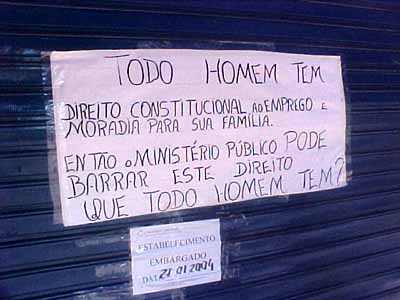 TODO HOMEM TEM
DIREITO CONSTITUCIONAL AO EMPREGO E
MORADIA PARA SUA FAMÍLIA.
ENTÃO O MINISTÉRIO PÚBLICO PODE
BARRAR ESTE DIREITO
QUE TODO HOMEM TEM?
ESTABELECIMENTO
EMBARGADO
27 01 2004